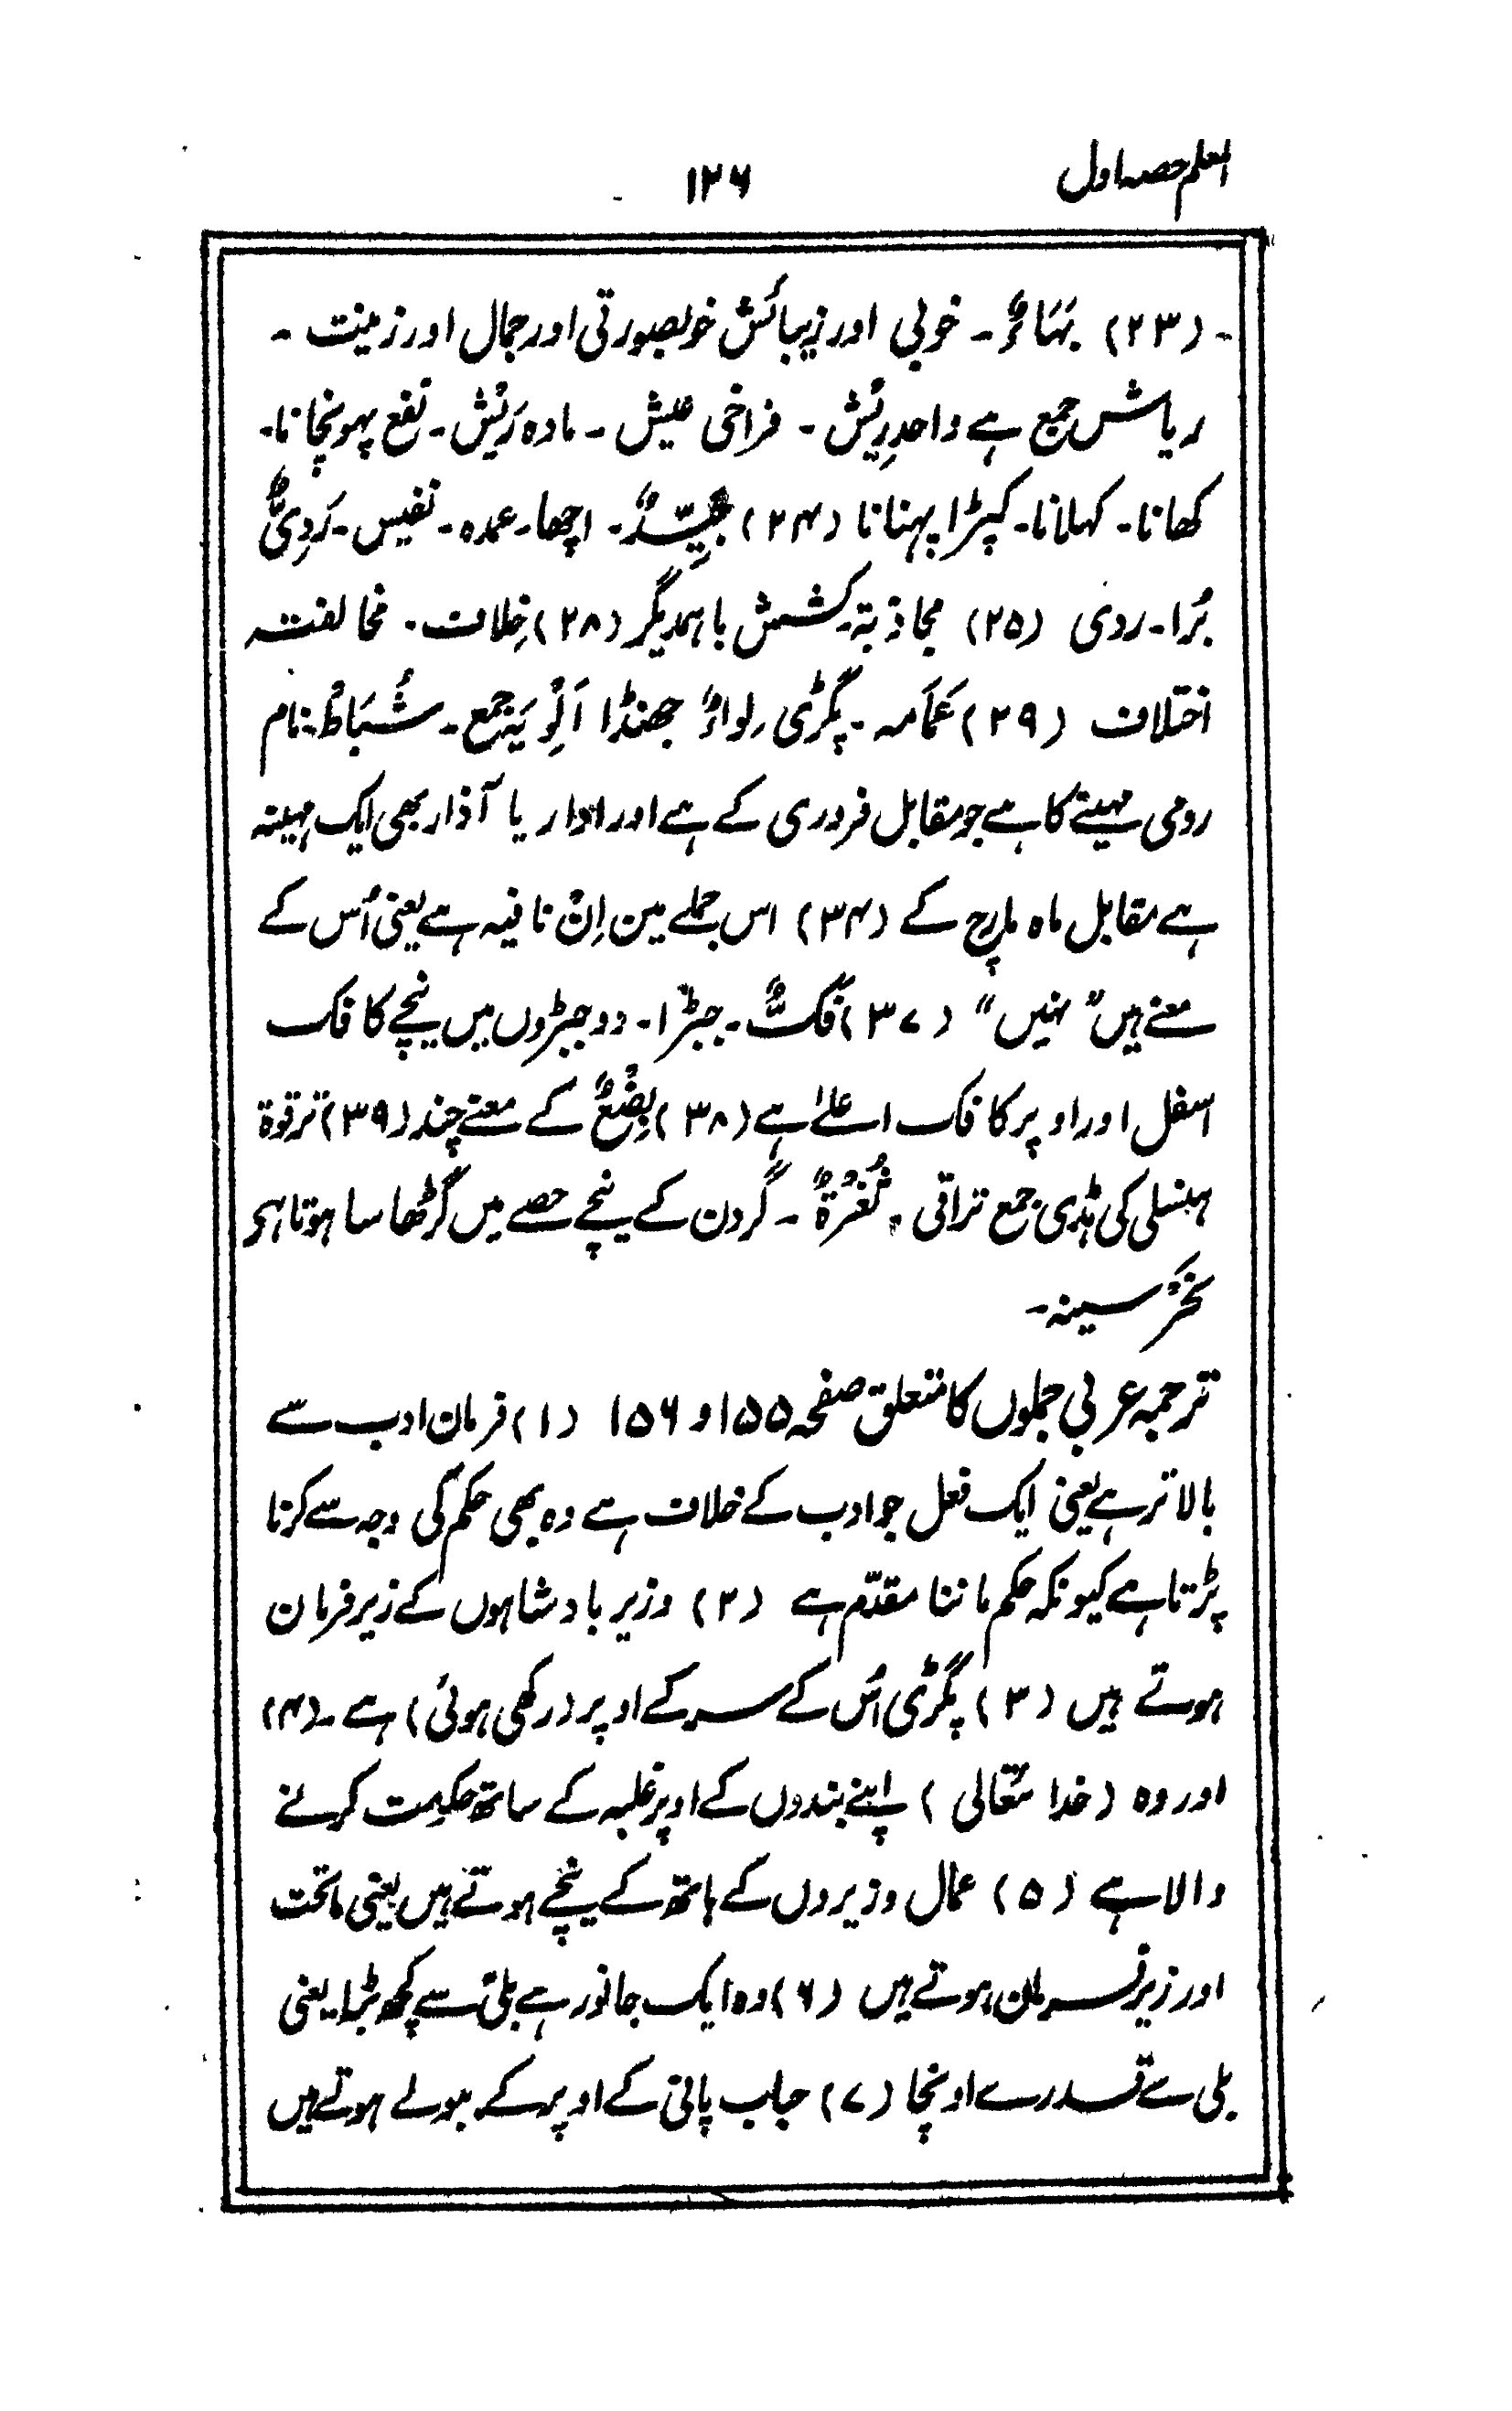 المعلم حصہ اول
۱۲۶
۔ (۲۳) بَہَاءٌ۔ خوبی اور زیبائش خوبصورتی اور جمال اور زینت ۔
ریاش جمع ہے واحد رِیْش ۔ فراخی عیش ۔ مادہ رَیْش۔ نفع پہونچانا۔
کھانا۔ کھلانا۔ کپڑا پہنانا (۲۴) جَیِّدٌ۔ اچھا۔ عمدہ۔ نفیس۔ رَدِیٌّ
بُرا۔ ردی (۲۵) مجاذبۃ۔ کشمش باہمدیگر (۲۸) خِلاف۔ مخالفت
اختلاف (۲۹) عَمَامہ۔ پگڑی۔ لواءٌ جھنڈا اَلْوِیَۃ جمع۔ شُبَاطْ۔ نام
رومی مہینے کا ہے جو مقابل فروری کے ہے اور ادار یا آذار بھی ایک مہینہ
ہے مقابل ماہ مارچ کے (۳۴) اس جملے مین اِنْ نافیہ ہے یعنی اُس کے
معنے ہیں ”نہیں“ (۳۷) فَکٌّ۔ جبڑا۔ دو جبڑوں میں نیچے کا فک
اسفل اور اوپر کا فک اعلےٰ ہے (۳۸) بِضْعٌ کے معنے چند (۳۹) ترقوۃ
ہنسلی کی ہڈی جمع تراقی ۔ ثُغْرَۃٌ ۔ گردن کے نیچے حصے میں گڑھا سا ہوتا ہی
نَحْرٌ سینہ۔
ترجمہ عربی جملوں کا متعلق صفحہ ۱۵۵ و ۱۵۶ (۱) فرمان ادب سے
بالاتر ہے یعنی ایک فعل جو ادب کے خلاف ہے وہ بھی حکم کی وجہ سے کرنا
پڑتا ہے کیونکہ حکم ماننا مقدّم ہے (۲) وزیر بادشاہوں کے زیر فرمان
ہوتے ہیں (۳) پگڑی اُس کے سر کے اوپر (رکھی ہوئی) ہے ۔ (۴)
اور وہ (خدا تعّالی) اپنے بندوں کے اوپر غلبہ کے ساتھ حکومت کرنے
والا ہے (۵) عمال وزیروں کے ہاتھ کے نیچے ہوتے ہیں یعنی ماتحت
اور زیر فرمان ہوتے ہیں (۶) وہ ایک جانور ہے بلی سے کچھ بڑا۔ یعنی
بلی سے قدرے اونچا (۷) حباب پانی کے اوپر کے ببولے ہوتے ہیں